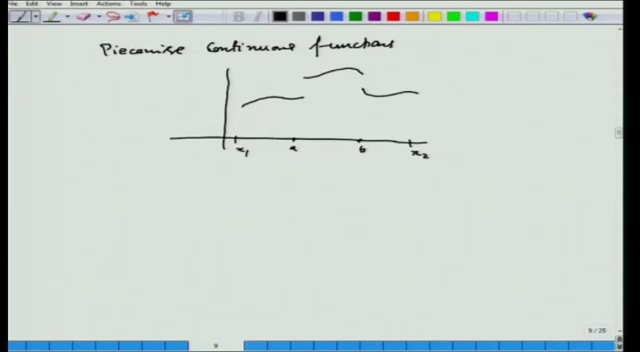 Edit View Insert Actions Tools Help
Piecewise Continuous functions
x1 a b x2
9 / 25
9